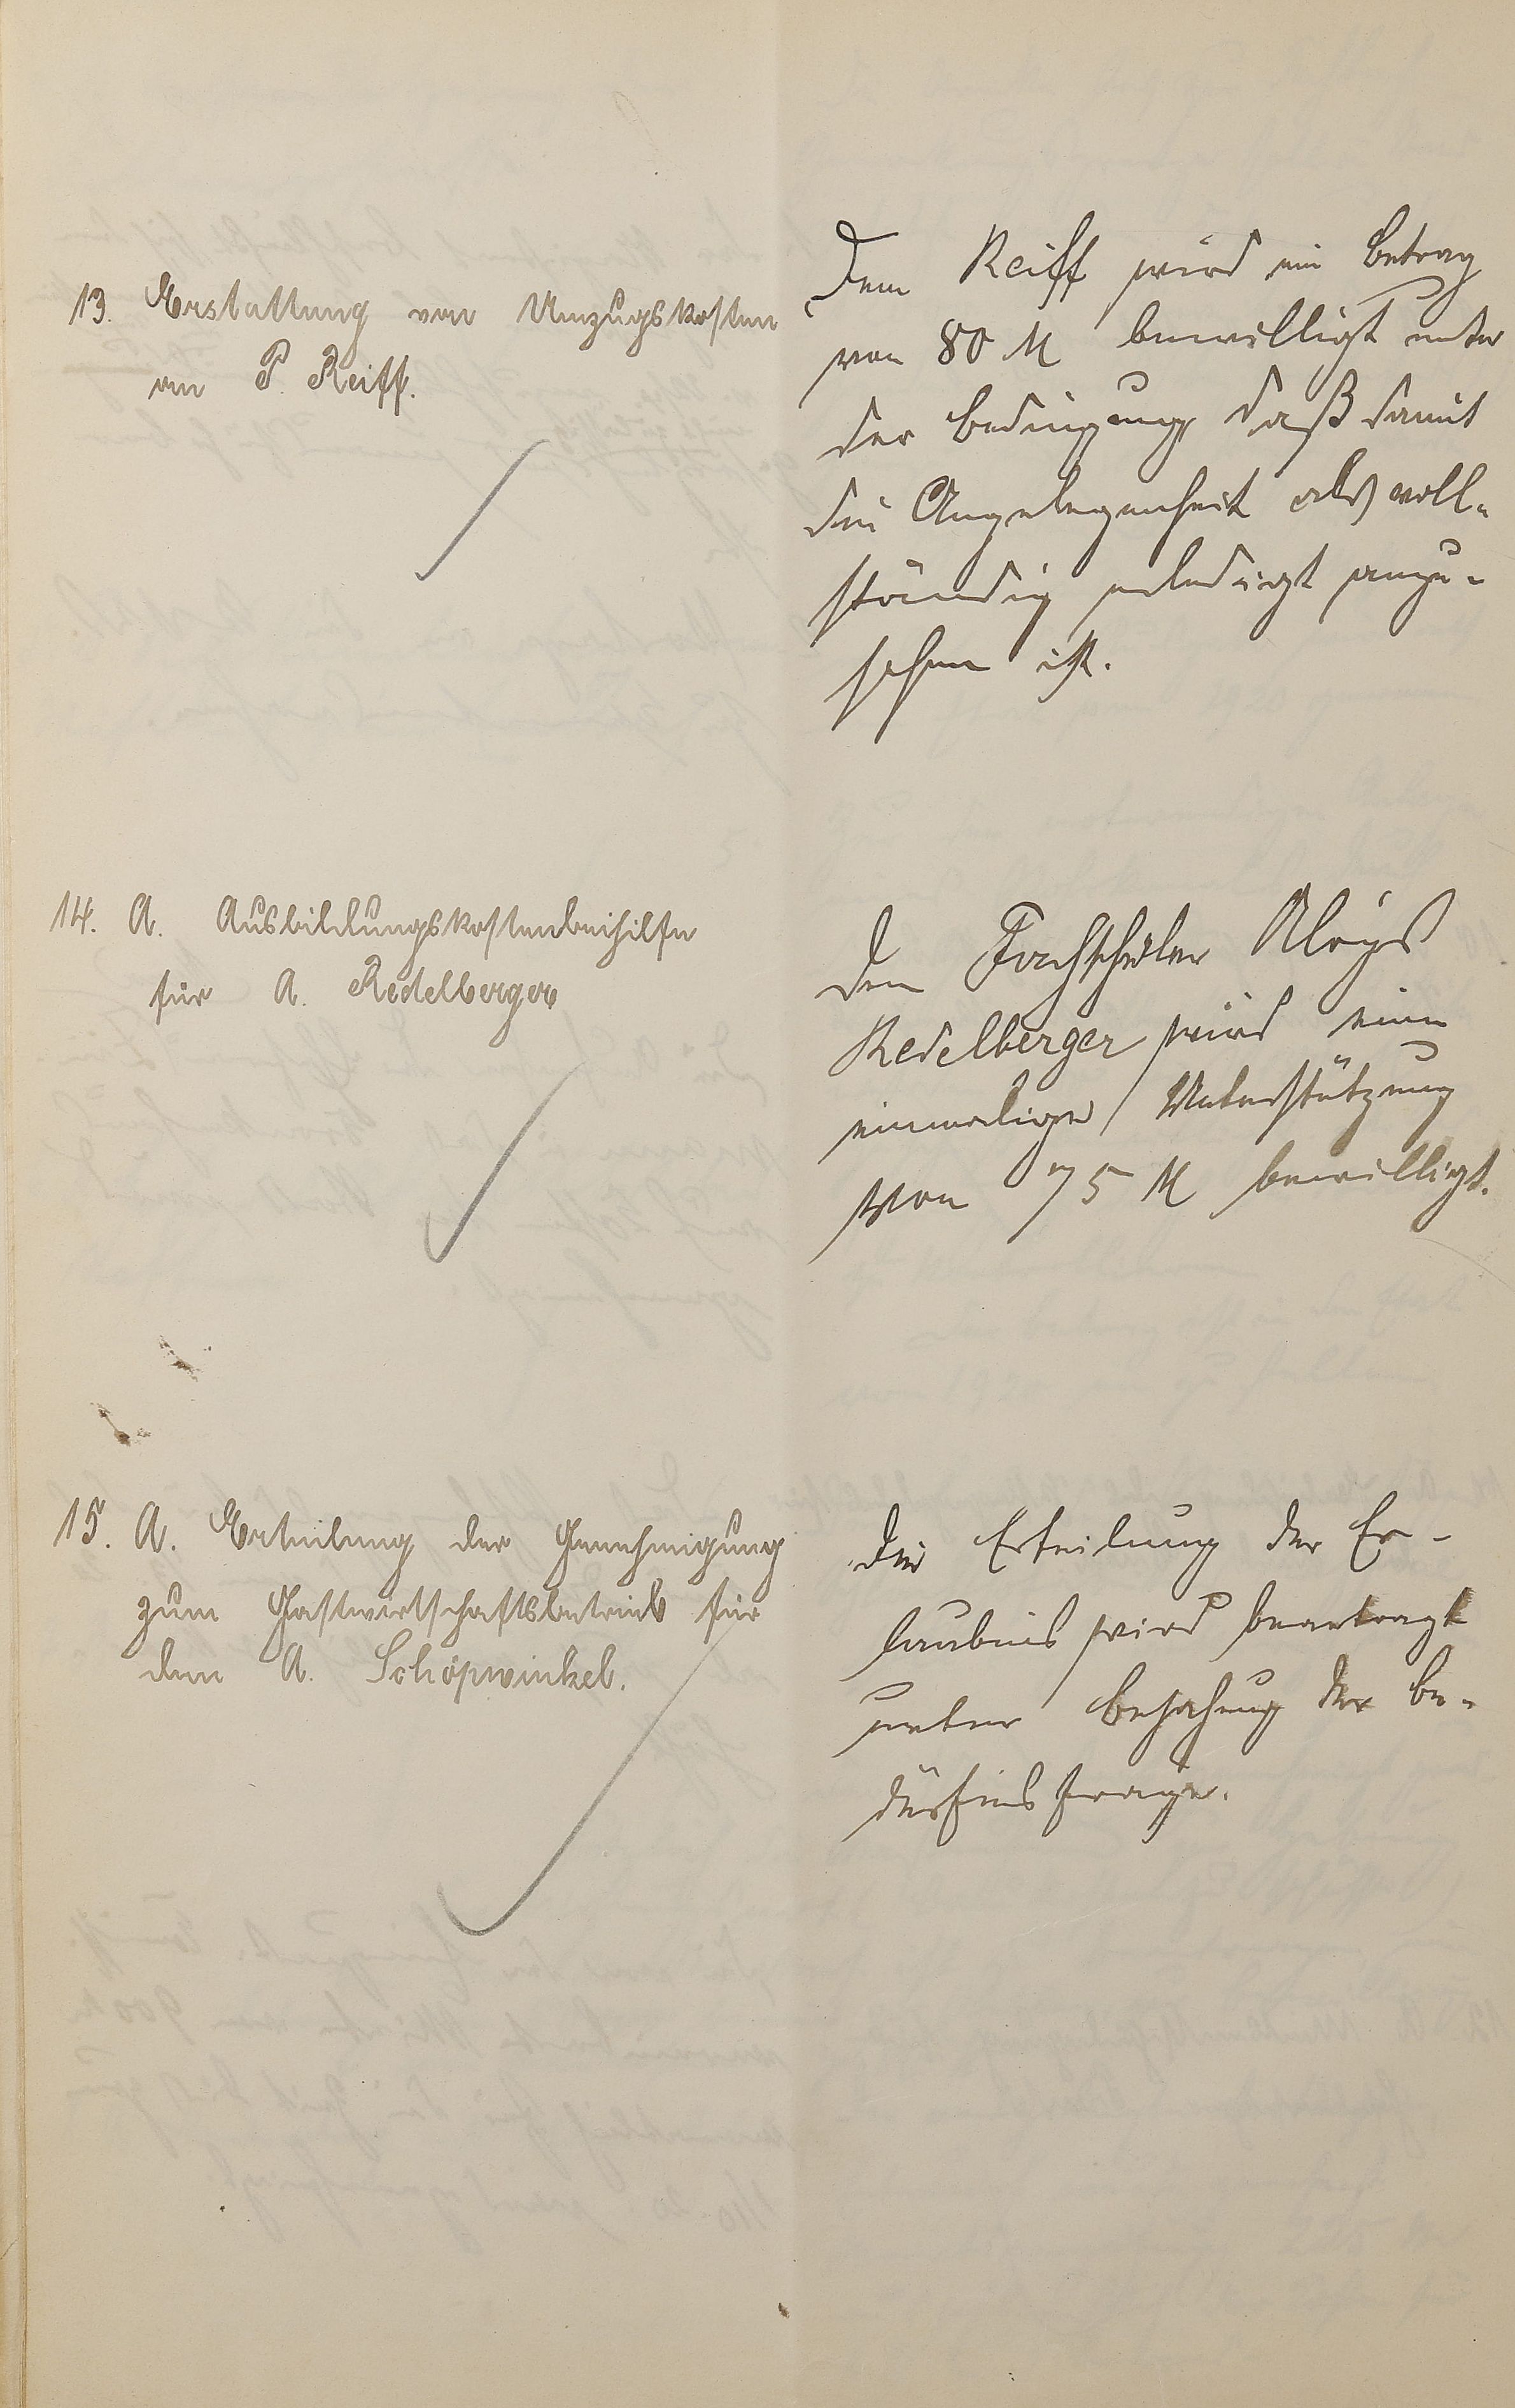 13. Erstattung von Umzugskosten
an P. Reiff.
Dem Reiff wird ein Betrag
von 80 M bewilligt unter
der Bedingung, daß damit
die Angelegenheit als voll-
ständig erledigt anzu-
sehen ist.
14. A. Ausbildungskostenbeihilfe
für A. Redelberger
Dem Fachschüler Aloys
Redelberger wird eine
einmalige Unterstützung
von 75 M bewilligt.
15. A. Erteilung der Genehmigung
zum Gastwirtschaftsbetrieb für
den A. Schöpwinkel.
Die Erteilung der Er-
laubnis wird beantragt
unter Bejahung der Be-
dürfnisfrage.